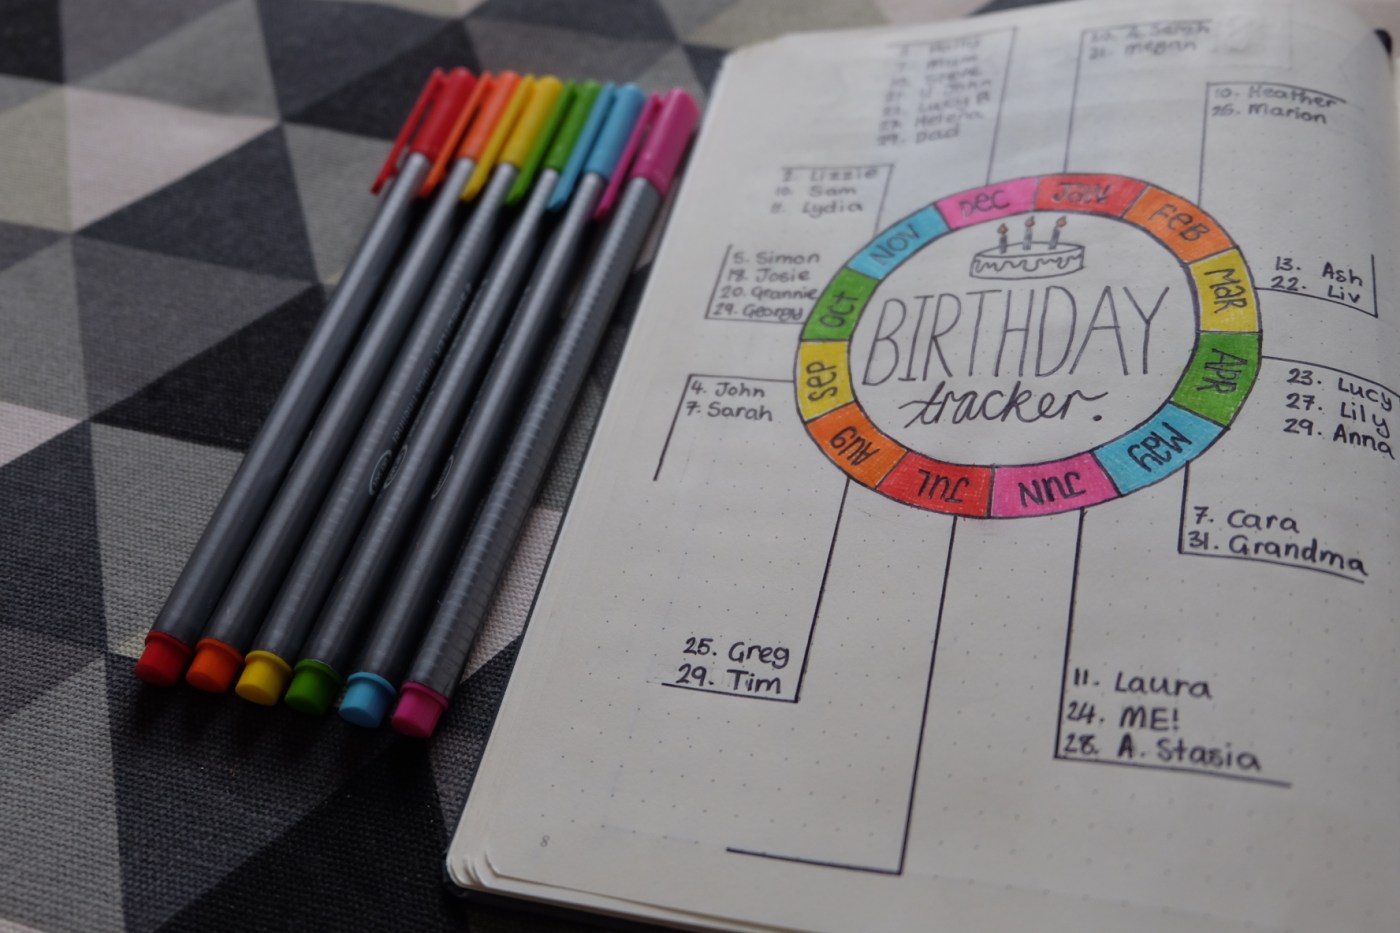 Mum
Lucy B
Helena
29. Dad
Sarah
31. Megan
10. Heather
26. Marion
2. Lizzie
10. Sam
Lydia
5. Simon
18. Josie
20. Grannie
29. Georgy
4. John
7. Sarah
DEC
JAN
FEB
MAR
APR
MAY
JUN
JUL
AUG
SEP
OCT
NOV
BIRTHDAY
tracker.
13. Ash
22. Liv
23. Lucy
27. Lily
29. Anna
7. Cara
31. Grandma
25. Greg
29. Tim
11. Laura
24. ME!
28. A. Stasia
8